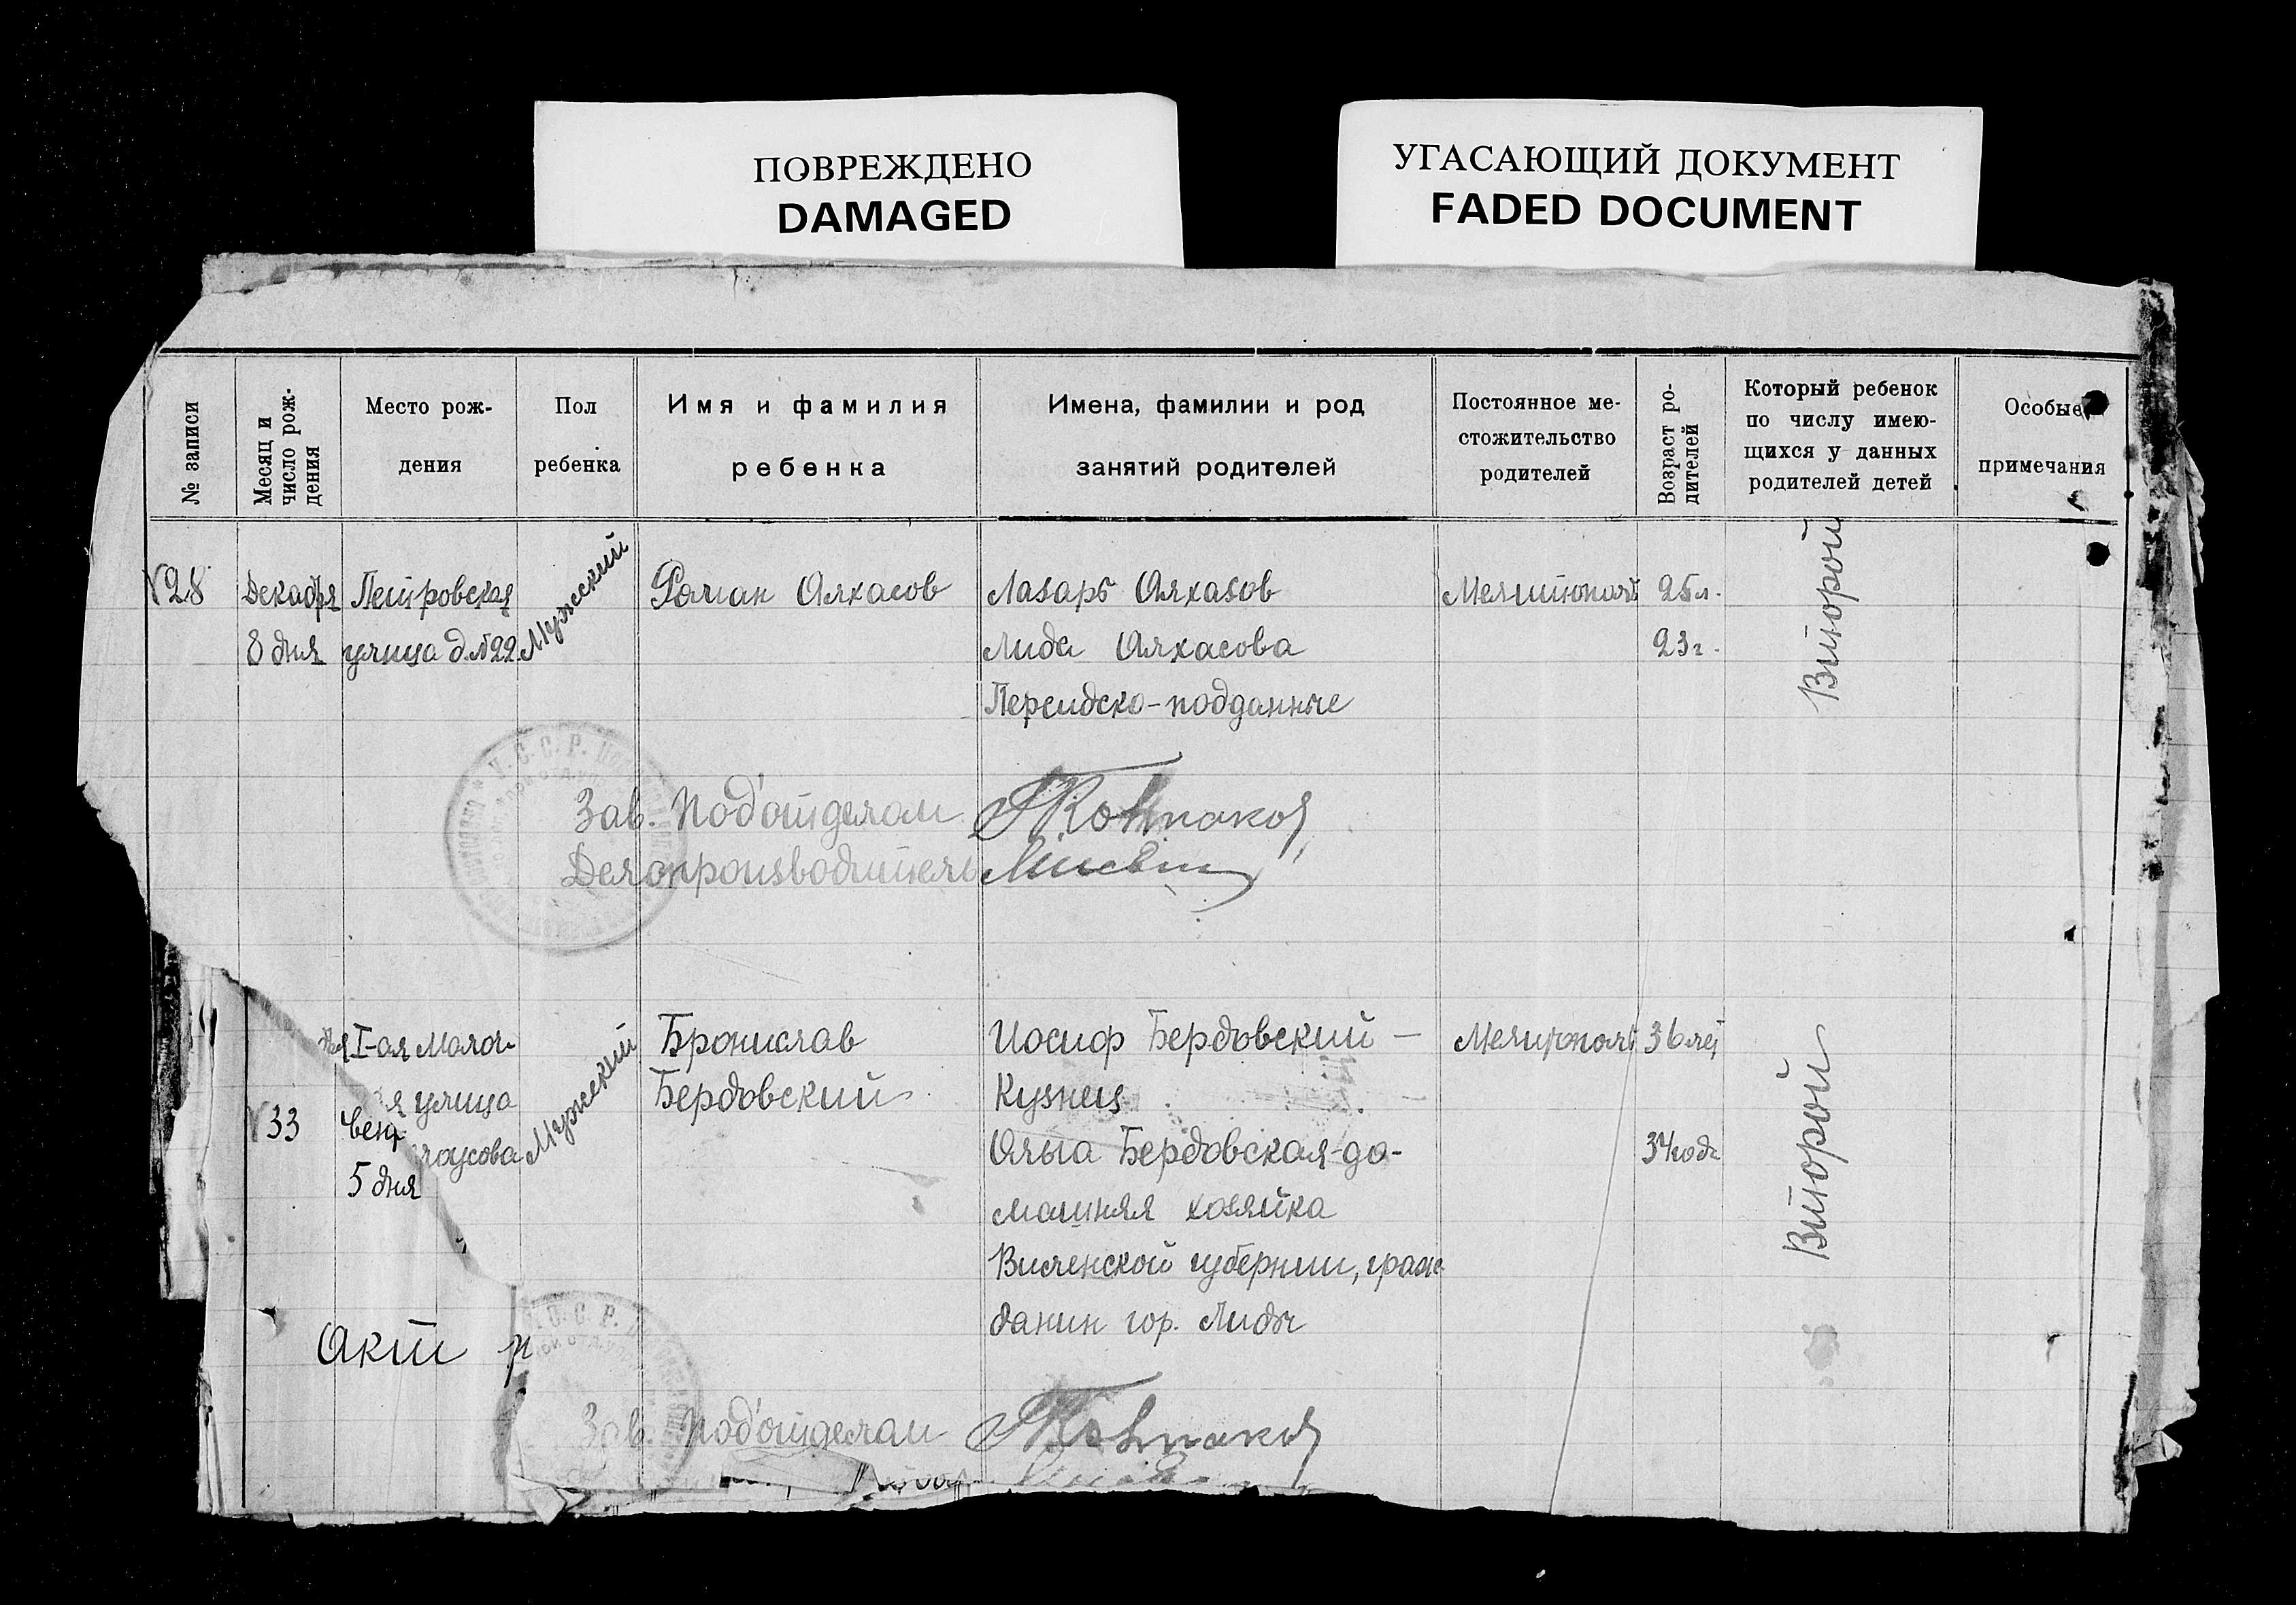 ПОВРЕЖДЕНО
DAMAGED
УГАСАЮЩИЙ ДОКУМЕНТ
FADED DOCUMENT
№ записи
Месяц и
число рож-
дения
Место рож-
дения
Пол
ребенка
Имя и фамилия
ребенка
Имена, фамилии и род
занятий родителей
Постоянное ме-
стожительство
родителей
Возраст ро-
дителей
Который ребенок
по числу имею-
щихся у данных
родителей детей
Особые
примечания
№28
Декабря
8 дня
Петровская
улица д. №22
Мужской
Роман Алхасов
Лазарь Алхазов
Лида Алхасова
Персидско-подданные
Мелитополь
25 л.
23 г.
Второй
У.С.С.Р.
Зав. Подотделом
Делопроизводитель
I-ая Мало-
ая улица
чоусова
Мужский
Бронислав
Бердовский
Иосиф Бердовский —
Кузнец
Ольга Бердовская-до-
машняя хозяйка
Виленской губернии, граж
данин гор. Лиды
Мелитополь
36 лет
34 года
Второй
№33
5 дня
Акт
У.С.С.Р.
Зав. Подотделом